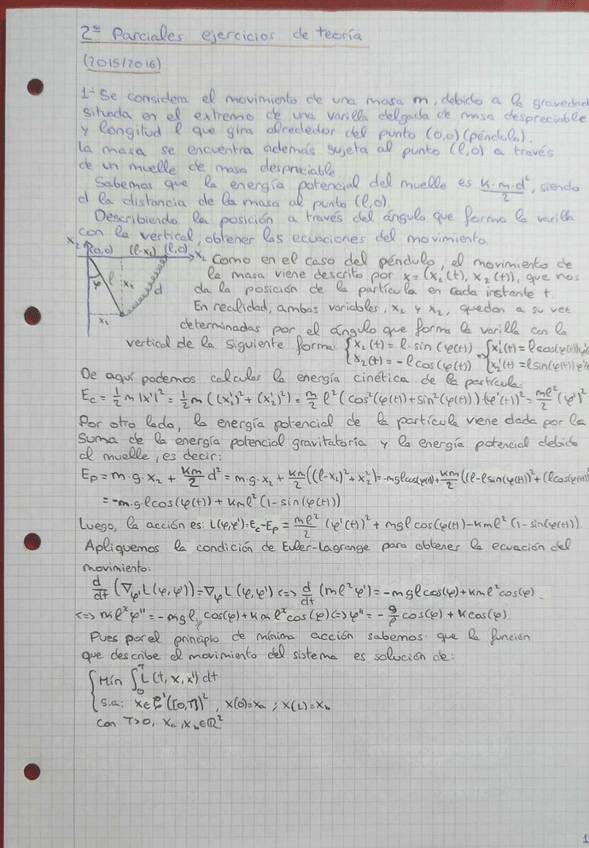 2º Parciales ejercicios de teoría
(2015/2016)
1- Se considera el movimiento de una masa m, debido a la gravedad
situada en el extremo de una varilla delgada de masa despreciable
y longitud l que gira alrededor del punto (0,0) (péndulo).
La masa se encuentra además sujeta al punto (l,0) a través
de un muelle de masa despreciable
Sabemos que la energía potencial del muelle es K·m·d²/2, siendo
d la distancia de la masa al punto (l,0).
Describiendo la posición a través del ángulo que forma la varilla
con la vertical, obtener las ecuaciones del movimiento.
x₂ (0,0) (l-x₁) (l,0) x₁
φ l x₂ d
x₁
Como en el caso del péndulo, el movimiento de
la masa viene descrito por x=(x₁(t), x₂(t)), que nos
da la posición de la partícula en cada instante t.
En realidad, ambas variables, x₁ y x₂, quedan a su vez
determinadas por el ángulo que forma la varilla con la
vertical de la siguiente forma: {x₁(t)=l·sin(φ(t)) {x₁'(t)=lcos(φ(t))φ'
x₂(t)=-lcos(φ(t)) x₂'(t)=lsin(φ(t))φ'
De aquí podemos calcular la energía cinética de la partícula:
Ec=1/2 m|x'|²=1/2 m((x₁')²+(x₂')²)=m/2 l²(cos²(φ(t))+sin²(φ(t)))(φ'(t))²=ml²/2 (φ')²
Por otro lado, la energía potencial de la partícula viene dada por la
suma de la energía potencial gravitatoria y la energía potencial debido
al muelle, es decir:
Ep=m·g·x₂+Km/2 d²=m·g·x₂+Km/2((l-x₁)²+x₂²)=-mglcos(φ(t))+Km/2((l-lsin(φ(t)))²+(lcos(φ(t)))²
=-m·g·lcos(φ(t))+Kml²(1-sin(φ(t)))
Luego, la acción es: L(φ,φ')=Ec-Ep=ml²/2 (φ'(t))²+mglcos(φ(t))-Kml²(1-sin(φ(t)))
Apliquemos la condición de Euler-Lagrange para obtener la ecuación del
movimiento:
d/dt(∇φ'L(φ,φ'))=∇φL(φ,φ')<=>d/dt(ml²φ')=-mglcos(φ)+Kml²cos(φ)
<=>ml²φ''=-mgl cos(φ)+Kml²cos(φ)<=>φ''=-g/l cos(φ)+Kcos(φ)
Pues por el principio de mínima acción sabemos que la función
que describe el movimiento del sistema es solución de:
{Min ∫₀ᵀ L(t,x,x')dt
s.a: x∈C¹([0,T])², x(0)=xₐ ; x(L)=x_b
con T>0, xₐ,x_b∈ℝ²
1